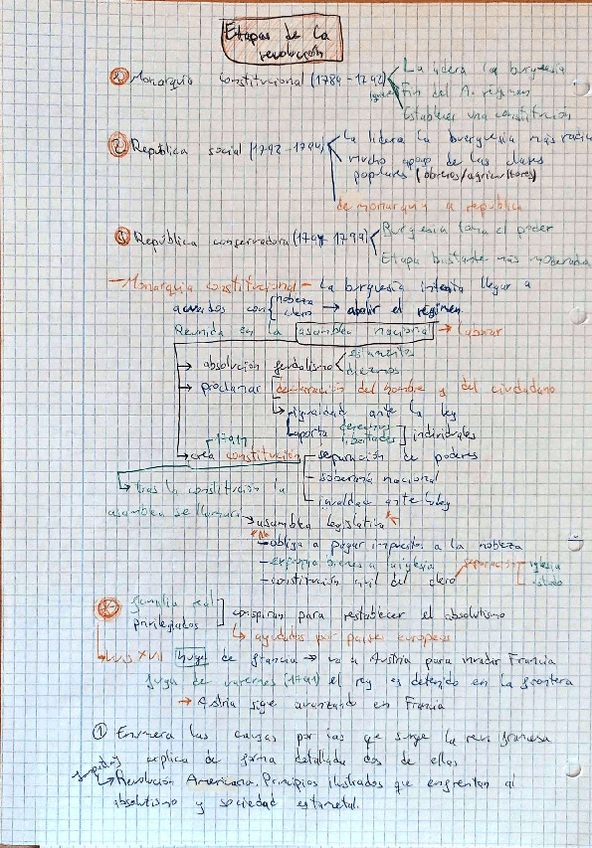 Etapas de la
revolución
① Monarquía constitucional (1789 - 1792) La lidera la burguesía
Fin del A. régimen
Establecer una constitución
② República social (1792 - 1794) La lidera la burguesía más
Mucho apoyo de las clases
populares (obreros/agricultores)
de monarquía a república
③ República conservadora (1794 1799) Burguesía toma el poder
Etapa bastante más moderada
- Monarquía constitucional - La burguesía intenta llegar a
acuerdos con nobleza clero → abolir el régimen
Reunida en la asamblea nacional →
→ absolución feudalismo
diezmos
→ proclamar declaración del hombre y del ciudadano
→ igualdad ante la ley
aporta derechos libertades individuales
1791
→ crea constitución - separación de poderes
- soberanía nacional
- igualdad ante ley
→ tras la constitución la
asamblea se llamará → asamblea legislativa
- obliga a pagar impuestos a la nobleza
- expropia bienes a iglesia
- constitución civil del clero separación iglesia
estado
familia real
privilegiados conspiran para restablecer el absolutismo
→ ayudados por países europeos
huye de francia → va a Austria para invadir Francia
fuga de varennes (1791) el rey es detenido en la frontera
→ Astria sige avanzando en Francia
① Enumera las causas por las que surge la rev. francesa
explica de forma detallada dos de ellas
→ Revolución Americana. Principios ilustrados que enfrentan al
absolutismo y sociedad estamental.